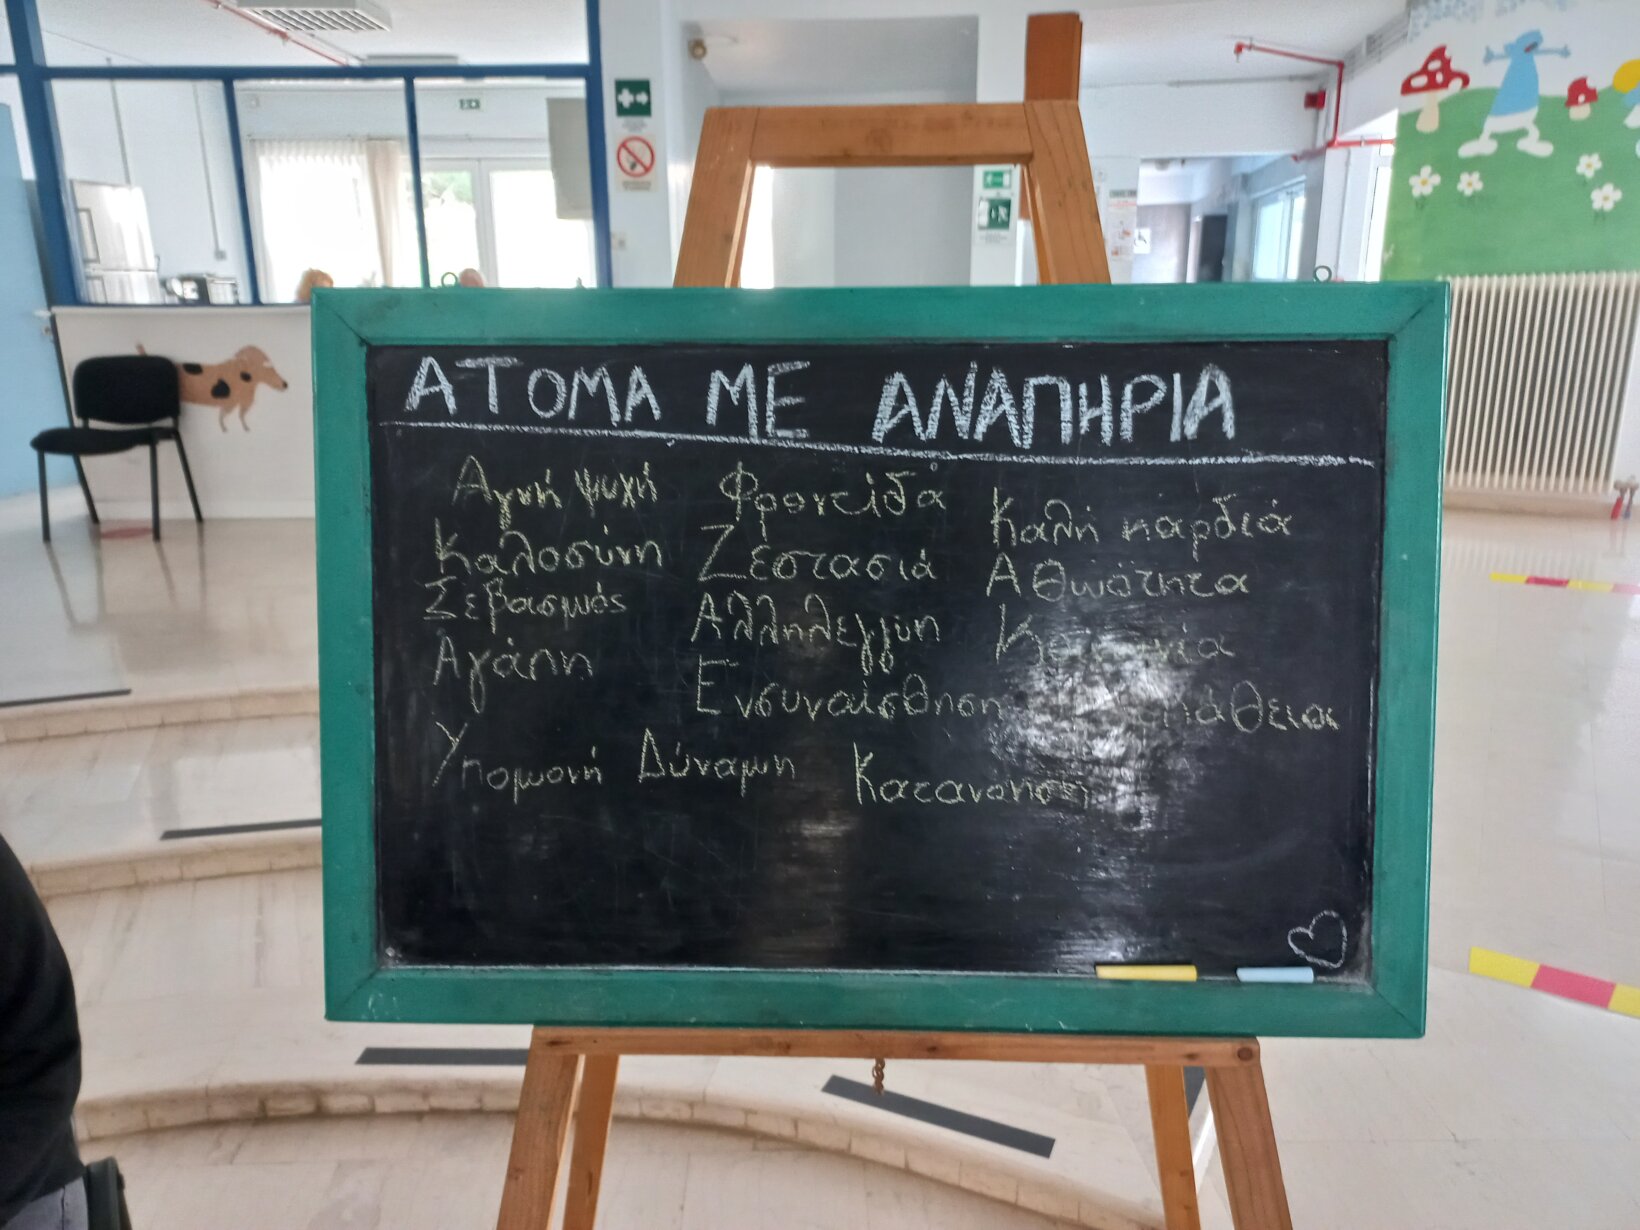 ΑΤΟΜΑ ΜΕ ΑΝΑΠΗΡΙΑ
Αγνή ψυχή Φροντίδα Καλή καρδιά
Καλοσύνη Ζεστασιά Αθωότητα
Σεβασμός Αλληλεγγύη
Αγάπη Ενσυναίσθηση
Υπομονή Δύναμη Κατανόηση